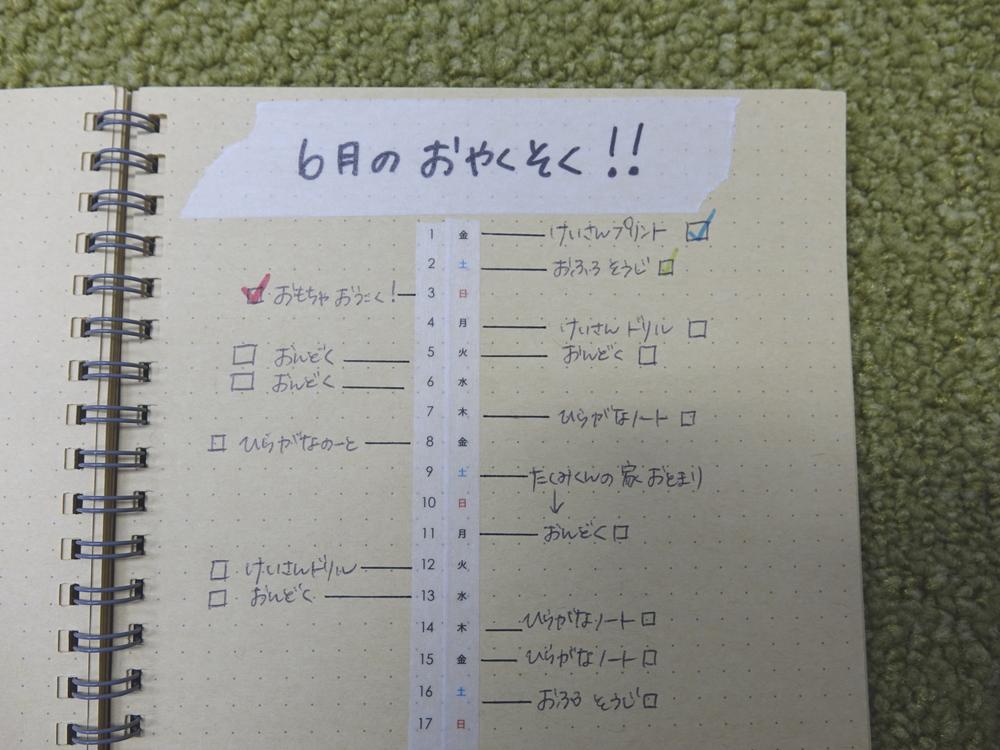 6月の おやくそく!!
1 金 けいさんプリント
2 土 おふろ そうじ
おもちゃ おうこく! 3 日
4 月 けいさん ドリル
おんどく 5 火 おんどく
おんどく 6 水
7 木 ひらがなノート
ひらがなのーと 8 金
9 土 たくみくんの 家 おとまり
10 日 ↓
11 月 おんどく
けいさんドリル 12 火
おんどく 13 水
14 木 ひらがなノート
15 金 ひらがなノート
16 土 おふろ そうじ
17 日